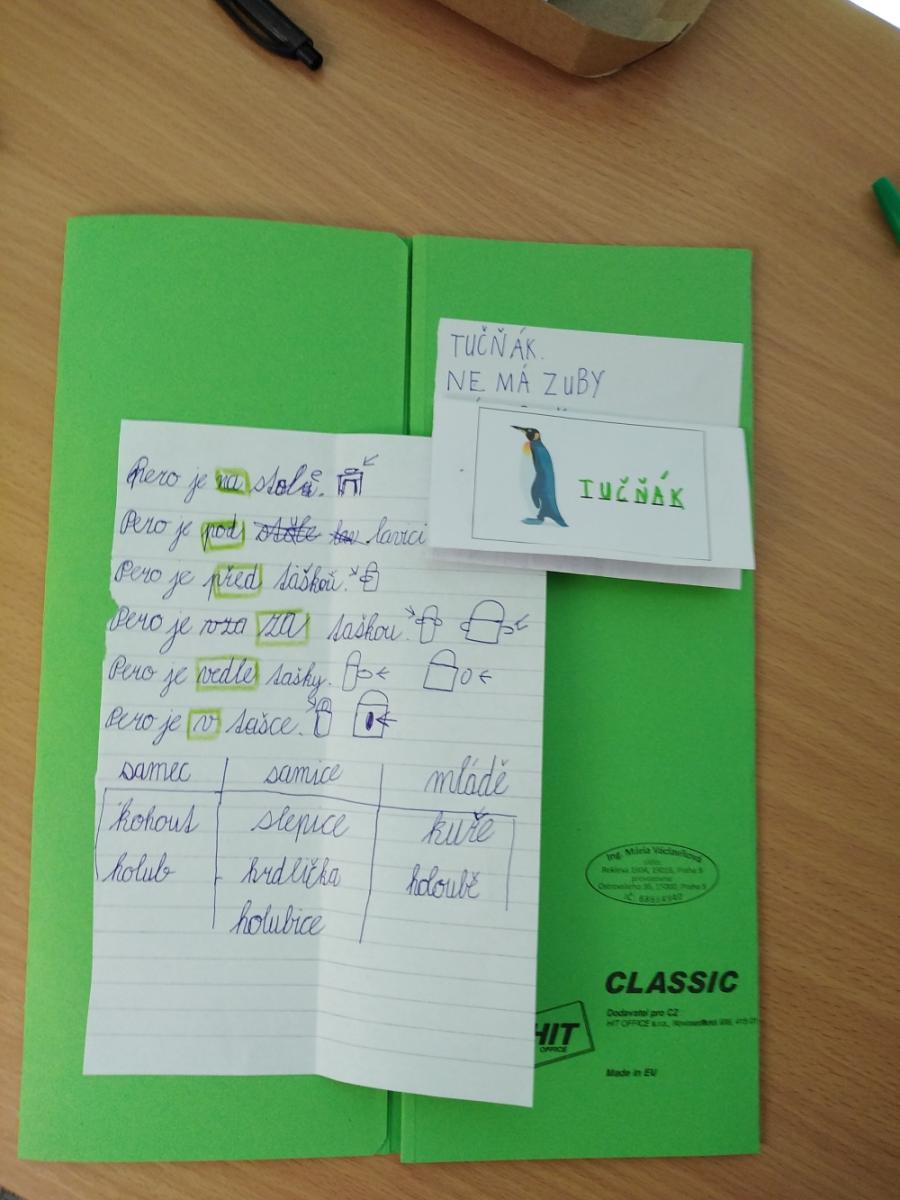 TUČŇÁK.
NE MÁ ZUBY
TUČŇÁK
Pero je na stole.
Pero je pod lavici
Pero je před taškou.
Pero je vza za taškou.
Pero je vedle tašky.
Pero je v tašce.
samec samice mládě
kohout slepice kuře
holub hrdlička holoubě
holubice
Ing. Mária Václavíková
CLASSIC
Dodavatel pro CZ
HIT OFFICE s.r.o.,
HIT
OFFICE
Made in EU